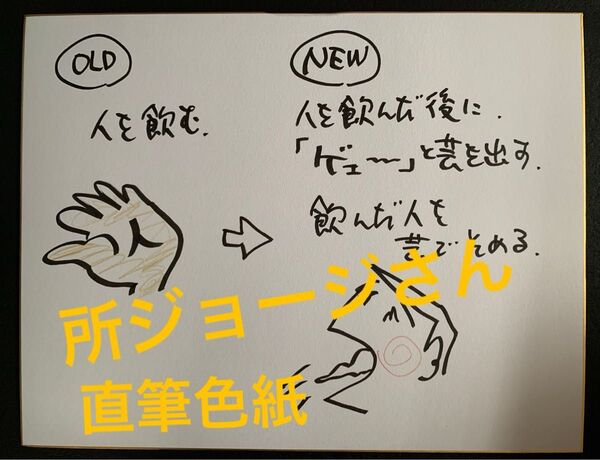 OLD
人を飲む.
人
NEW
人を飲んだ後に.
「ゲェ〜」と芸を出す.
飲んだ人を
芸でそめる.
所ジョージさん
直筆色紙